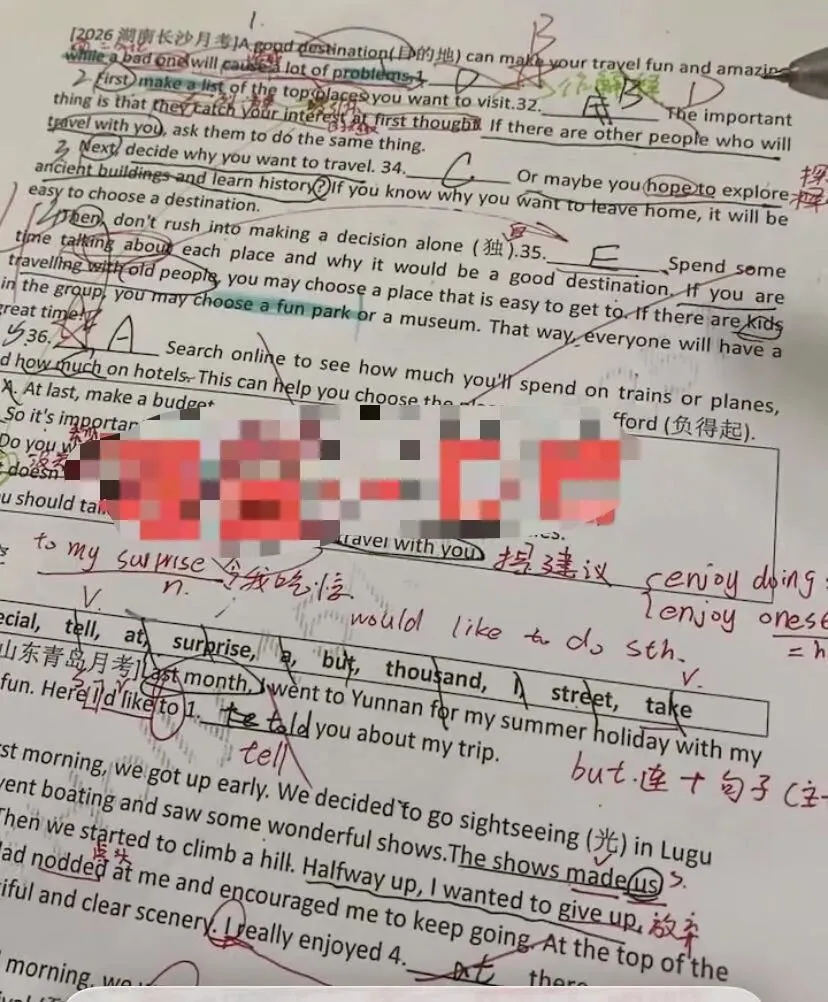 1.
B
[2026 湖南长沙月考]A good destination(目的地) can make your travel fun and amazing
while a bad one will cause a lot of problems.1. D
2 First, make a list of the top places you want to visit.32. B D The important
thing is that they catch your interest at first thought. If there are other people who will
travel with you, ask them to do the same thing.
3 Next, decide why you want to travel. 34. C Or maybe you hope to explore
ancient buildings and learn history? If you know why you want to leave home, it will be
easy to choose a destination.
Then, don't rush into making a decision alone (独).35. E Spend some
time talking about each place and why it would be a good destination. If you are
travelling with old people, you may choose a place that is easy to get to. If there are kids
in the group, you may choose a fun park or a museum. That way, everyone will have a
great time!
5 36. A Search online to see how much you'll spend on trains or planes,
d how much on hotels. This can help you choose the
fford (负得起).
A. At last, make a budget
So it's importan
Do you w
doesn
u should ta
travel with you 提建议
to my surprise 令我吃惊
n.
enjoy doing
enjoy ones
= h
would like to do sth.
v.
v.
ecial, tell, at, surprise, a, but, thousand, I, street, take
山东青岛月考]Last month, I went to Yunnan for my summer holiday with my
fun. Here I'd like to 1. te told you about my trip.
tell
but. 连 + 句子 (主
rst morning, we got up early. We decided to go sightseeing (光) in Lugu
vent boating and saw some wonderful shows.The shows made us s.
Then we started to climb a hill. Halfway up, I wanted to give up, 放弃
点头
Dad nodded at me and encouraged me to keep going. At the top of the
iful and clear scenery. I really enjoyed 4. at there
morning, we